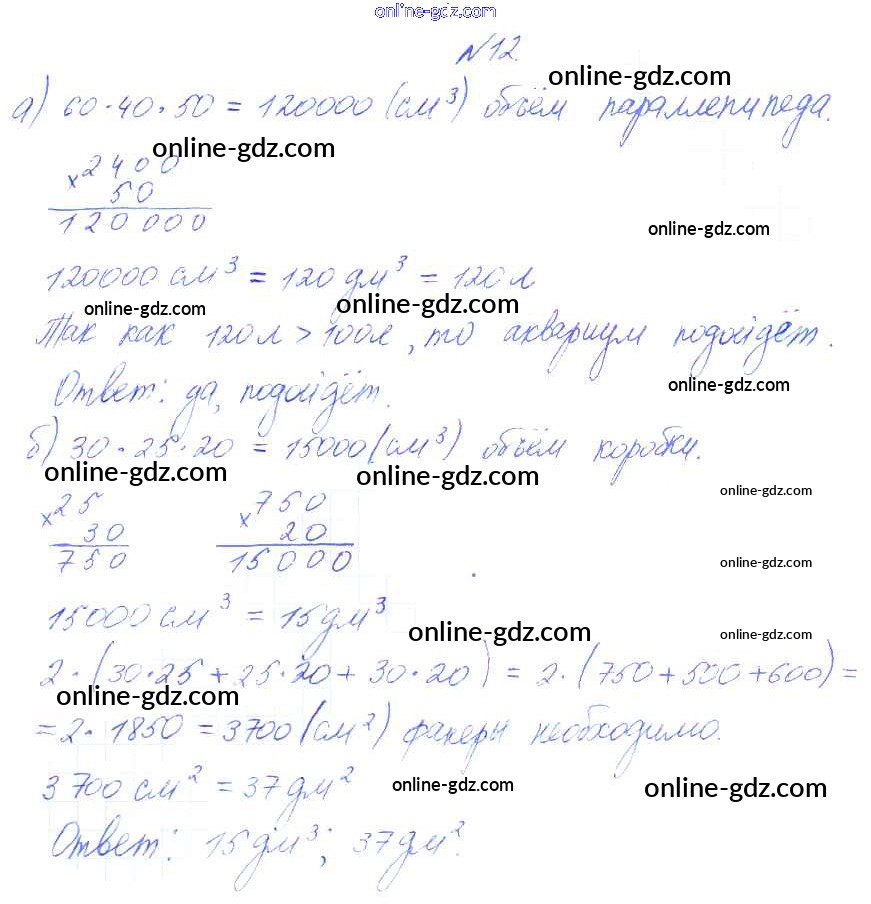 online-gdz.com
№12.
online-gdz.com
а) 60·40·50 = 120000 (см³) объём параллепипеда.
online-gdz.com
×2400
50
120 000
online-gdz.com
120000 см³ = 120 дм³ = 120 л
online-gdz.com
online-gdz.com
Так как 120 л > 100 л, то аквариум подойдёт.
online-gdz.com
Ответ: да, подойдёт.
б) 30·25·20 = 15000 (см³) объём коробки.
online-gdz.com
online-gdz.com
online-gdz.com
×25 ×750
30 20
750 15000
online-gdz.com
15000 см³ = 15 дм³
online-gdz.com
online-gdz.com
2·(30·25 + 25·20 + 30·20) = 2·(750 + 500 + 600) =
online-gdz.com
= 2·1850 = 3700 (см²) фанеры необходимо.
3700 см² = 37 дм²
online-gdz.com
online-gdz.com
Ответ: 15 дм³; 37 дм².